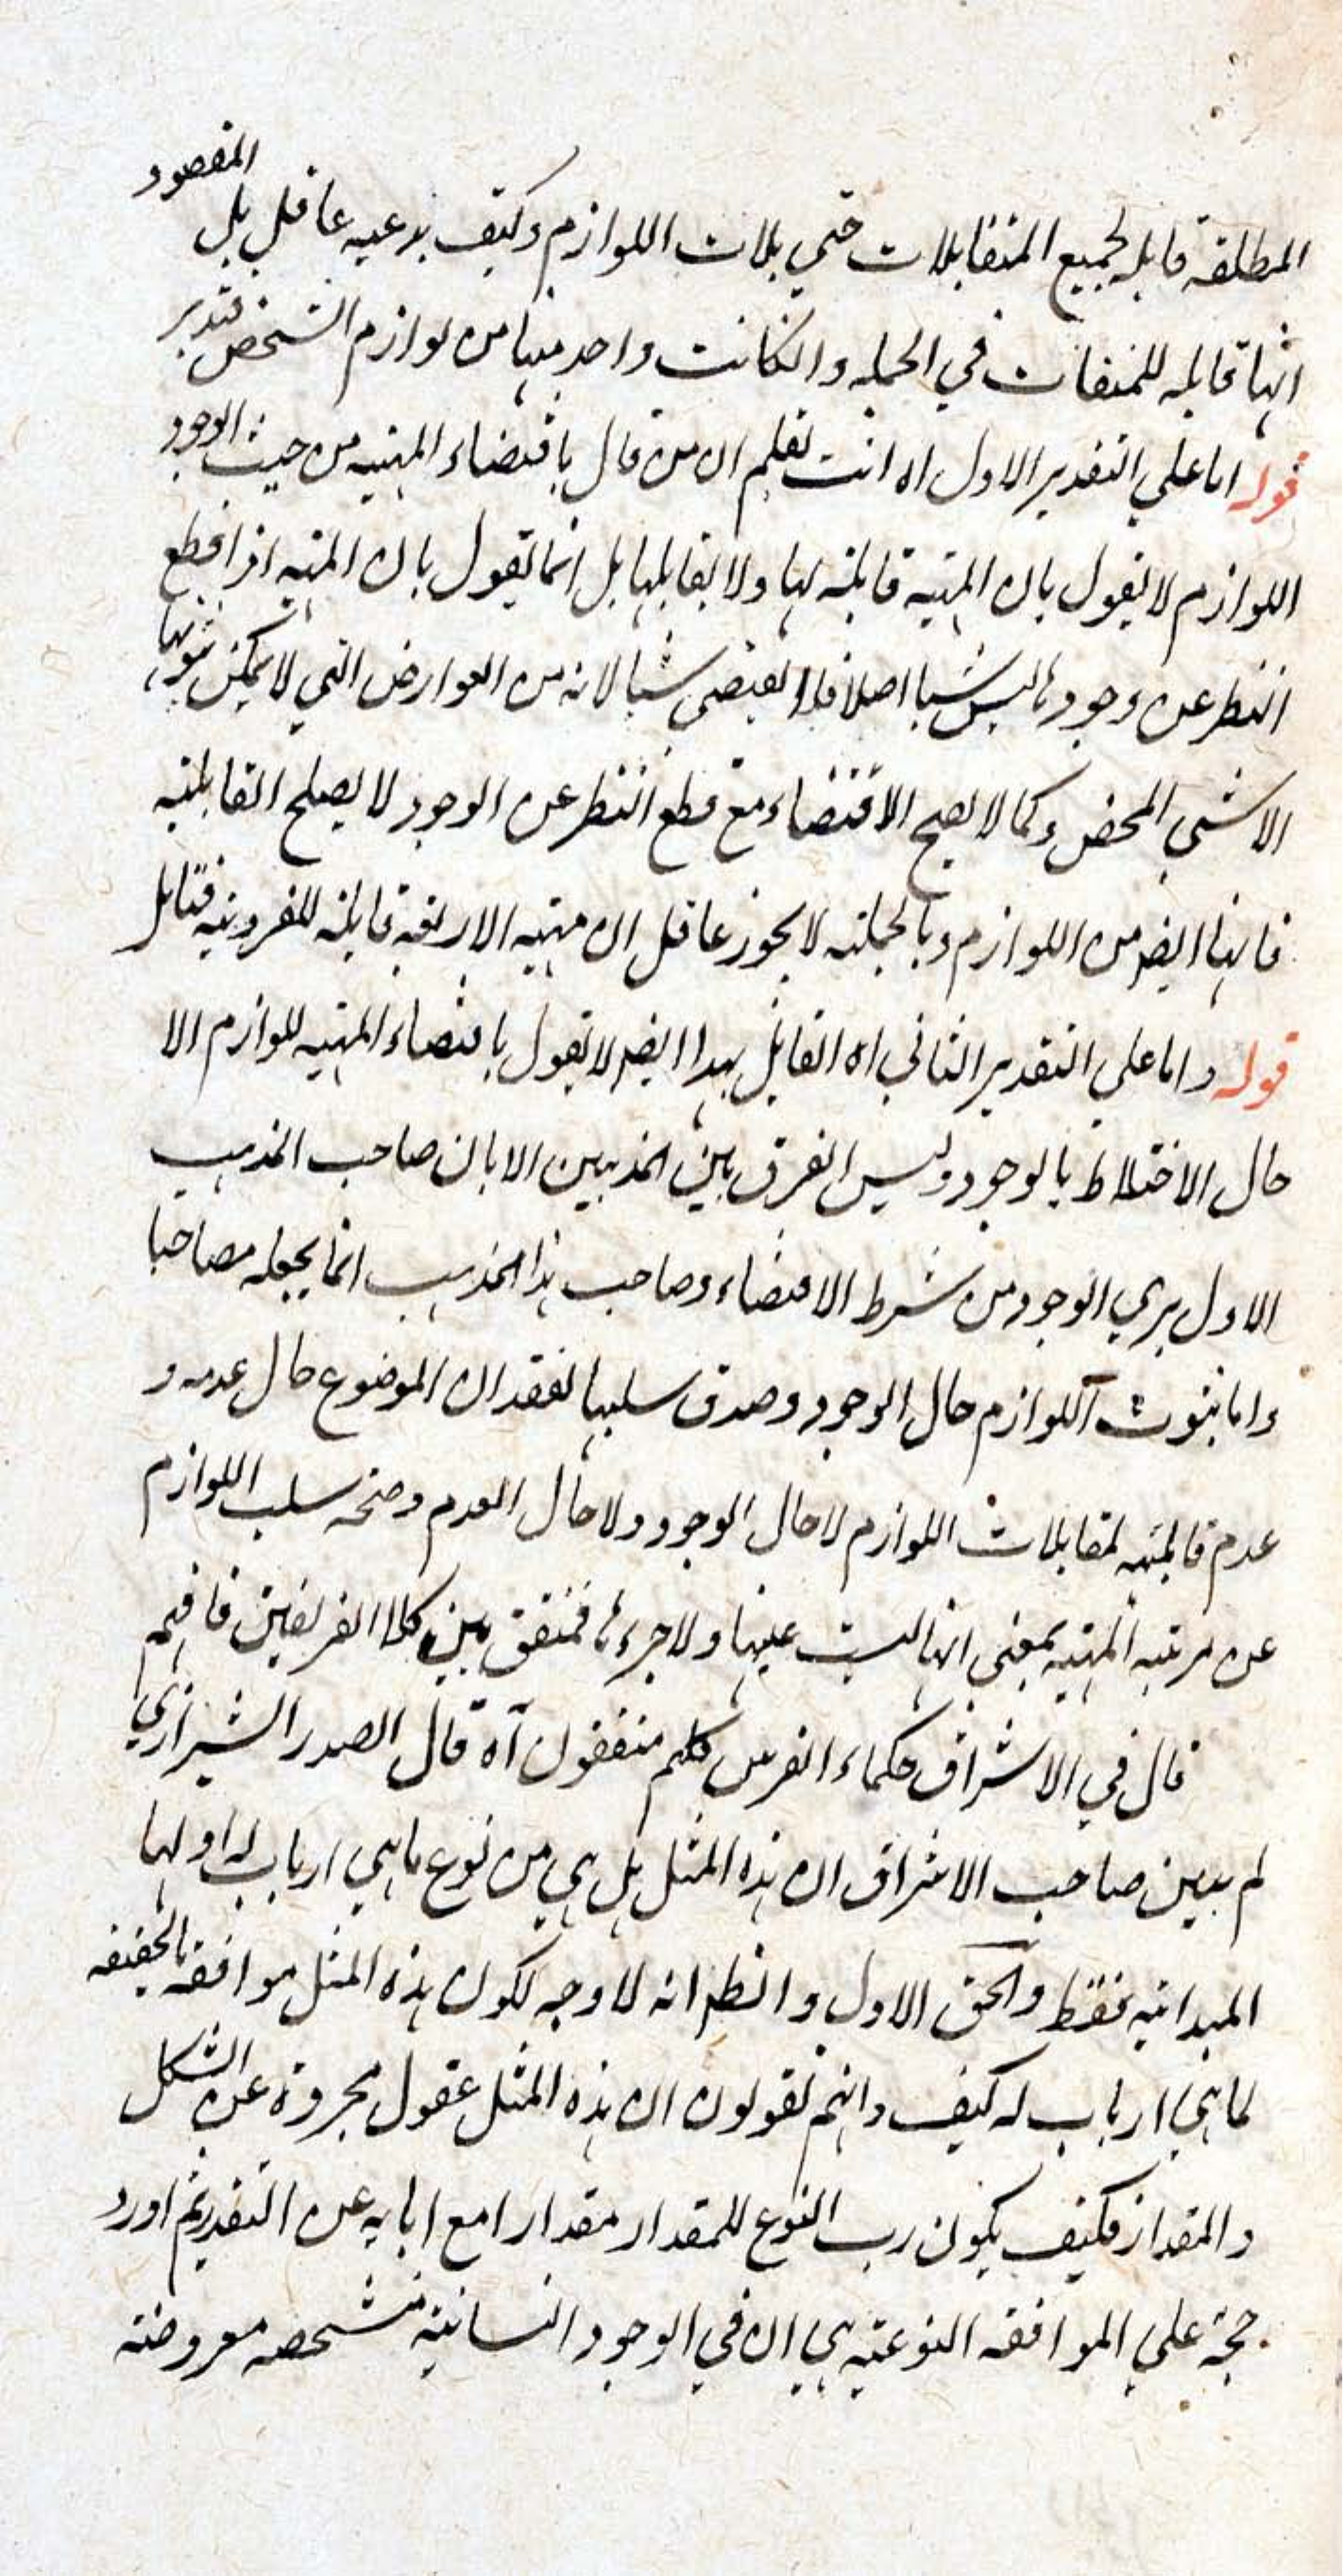 المطلقة قابله لجميع المتقابلات حتي بلات اللوازم وكيف يدعيه عاقل بل المقصود
انها قابله للمتقابلات في الجمله وانكانت واحد منها من لوازم الشخص فتدبر
قوله اما علي التقدير الاول اه انت تعلم ان من قال باقتضاء المهيه من حيث الوجود
اللوازم لا يقول بان المهية قابلة لها ولا بقابلها بل انما يقول بان المهيه اذا قطع
النظر عن وجودها ليس شيا اصلا فلا يقتضي شيا لانه من العوارض التي لا يمكن ثبوتها
الاشي المحض وكما لا يصح الاقتضاء مع قطع النظر عن الوجود لا يصلح القابلية
فانها ايضا من اللوازم وبالجملة لا يجوز عاقل ان مهيه الاربعة قابلة للفردية فتامل
قوله واما علي التقدير الثاني اه القايل بهذا ايضا لا يقول باقتضاء المهيه للوازم الا
حال الاختلاط بالوجود وليس الفرق بين المذهبين الا بان صاحب المذهب
الاول يري الوجود من شرط الاقتضاء وصاحب هذا المذهب انما يجعله مصاحبا
واما ثبوت اللوازم حال الوجود وصدق سلبها لفقدان الموضوع حال عدمه و
عدم قابليته لمقابلات اللوازم لا حال الوجود ولا حال العدم وصحه سلب اللوازم
عن مرتبه المهيه بمعني انها ليست عينها ولا جزءها فمتفق بين كلا الفريقين فافهم
قال في الاشراق حكماء الفرس كلهم متفقون اه قال الصدر الشيرازي
لم يبين صاحب الاشراق ان هذه المثل هل هي من نوع ما هي ارباب له او لها
المبدائيه فقط والحق الاول وانظر انه لا وجه لكون هذه المثل موافقه بالحقيقه
لما هي ارباب له كيف وانهم يقولون ان هذه المثل عقول مجردة عن الشكل
والمقدار فكيف يكون رب النوع للمقدار مقدارا مع ابايه عن التقدير ثم اورد
حجة علي الموافقه النوعيه هي ان في الوجود انسانية متشخصه معروضه